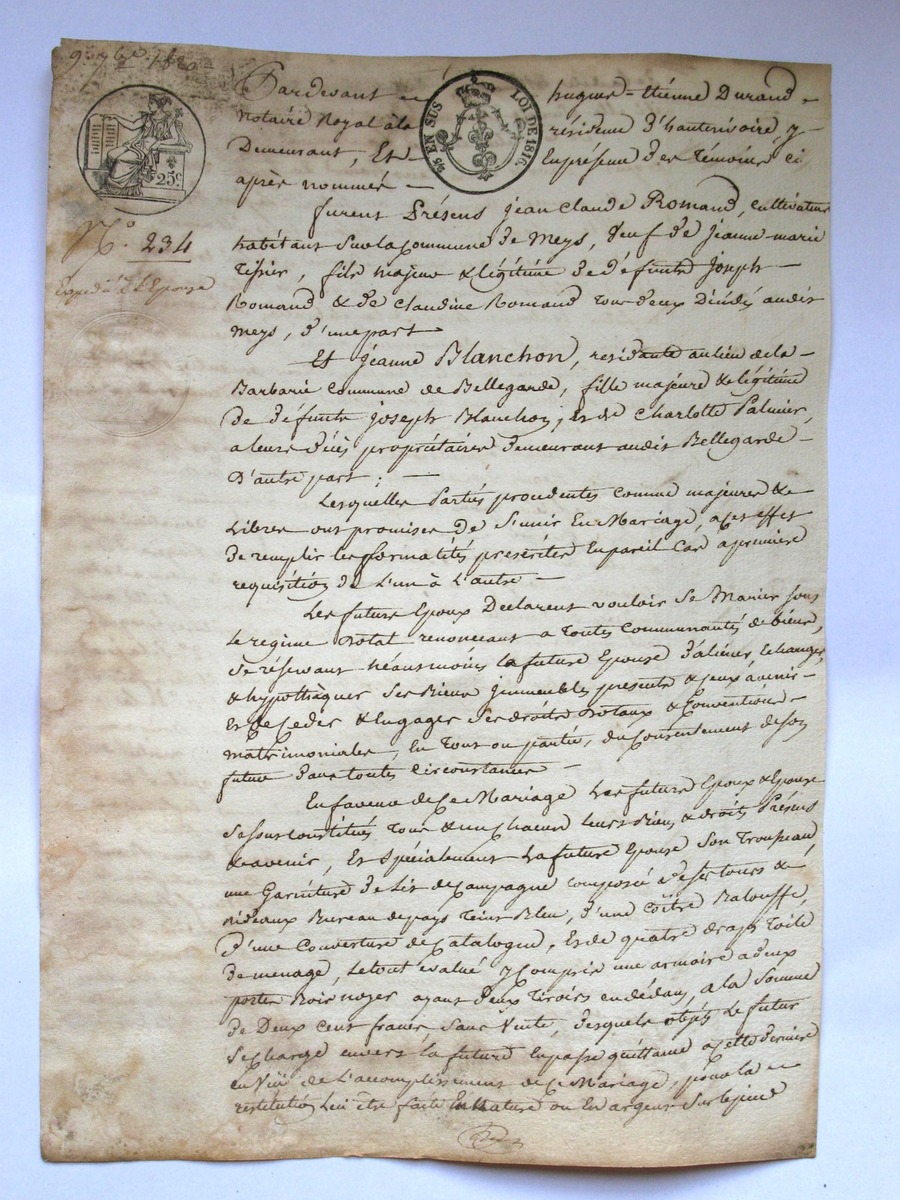 9. 7bre 1820
25 EN SUS
LOI DE 1816
25c
N°. 234
Expédié à l'Epouse
Pardevant hugues=étiénne Durand
Notaire Royal à la résidence d'hauterivoire, y
Demeurant, Et En présence des témoins ci
après nommés
furent Présens jean Claude Romand, cultivateur
habitant sur la commune de Meys, veuf de jeanne-marie
Tissier, fils majeur & légitime de défunts joseph
Romand & de Claudine Romand tous deux Décédés audit
Meys, d'une part
Et jeanne Blanchon, residante au lieu de la
Barbarie Commune de Bellegarde, fille majeure & légitime
de défunts joseph Blanchon, et de Charlotte Palmier,
a leurs décès propriétaires demeurant audit Bellegarde
D'autre part;
Lesquelles Parties procédentes comme majeures &
Libres ont promises de s'unir En Mariage, a cet effet
de remplir les formalités préscrites En pareil Cas a premiere
requisition de l'un à l'autre
Les future Epoux Declarent vouloir se Marier sous
le regime Dotal renoncant a toutes Communautés de biens,
se réservant néantmoins la future Epouse d'aliéner Echanger,
& hypothèquer ses Biens jmmeubles presents & ceux à venir
Et de Ceder & Engager ses droits Dotaux & Conventions
matrimoniales, En tout ou partie, du Consentement de son
futur dans toutes Circonstances
En faveur de Ce Mariage les future Epoux & Epouse
se sont Constitués tous & un Chacun leurs Biens & droits Présens
& avenir, Et spécialement la future Epouse son Trousseau,
une Garniture de lit de Campagne composée de ses tours &
rideaux Bureau de pays teint Bleu, d'une coître Balouffe,
d'une Couverture de Catalogne, Et de quatre draps toile
de menage, le tout évalué y Compris une armoire a deux
portes Bois noyer ayant deux tiroirs en dedans, a la Somme
de Deux cent francs sans Vente, desquels objets le futur
se charge envers la future En passe quittance a cette derniere
de l'accomplissement de Ce Mariage, pour la
restitution Lui être faite En Nature ou En argent sur le pied